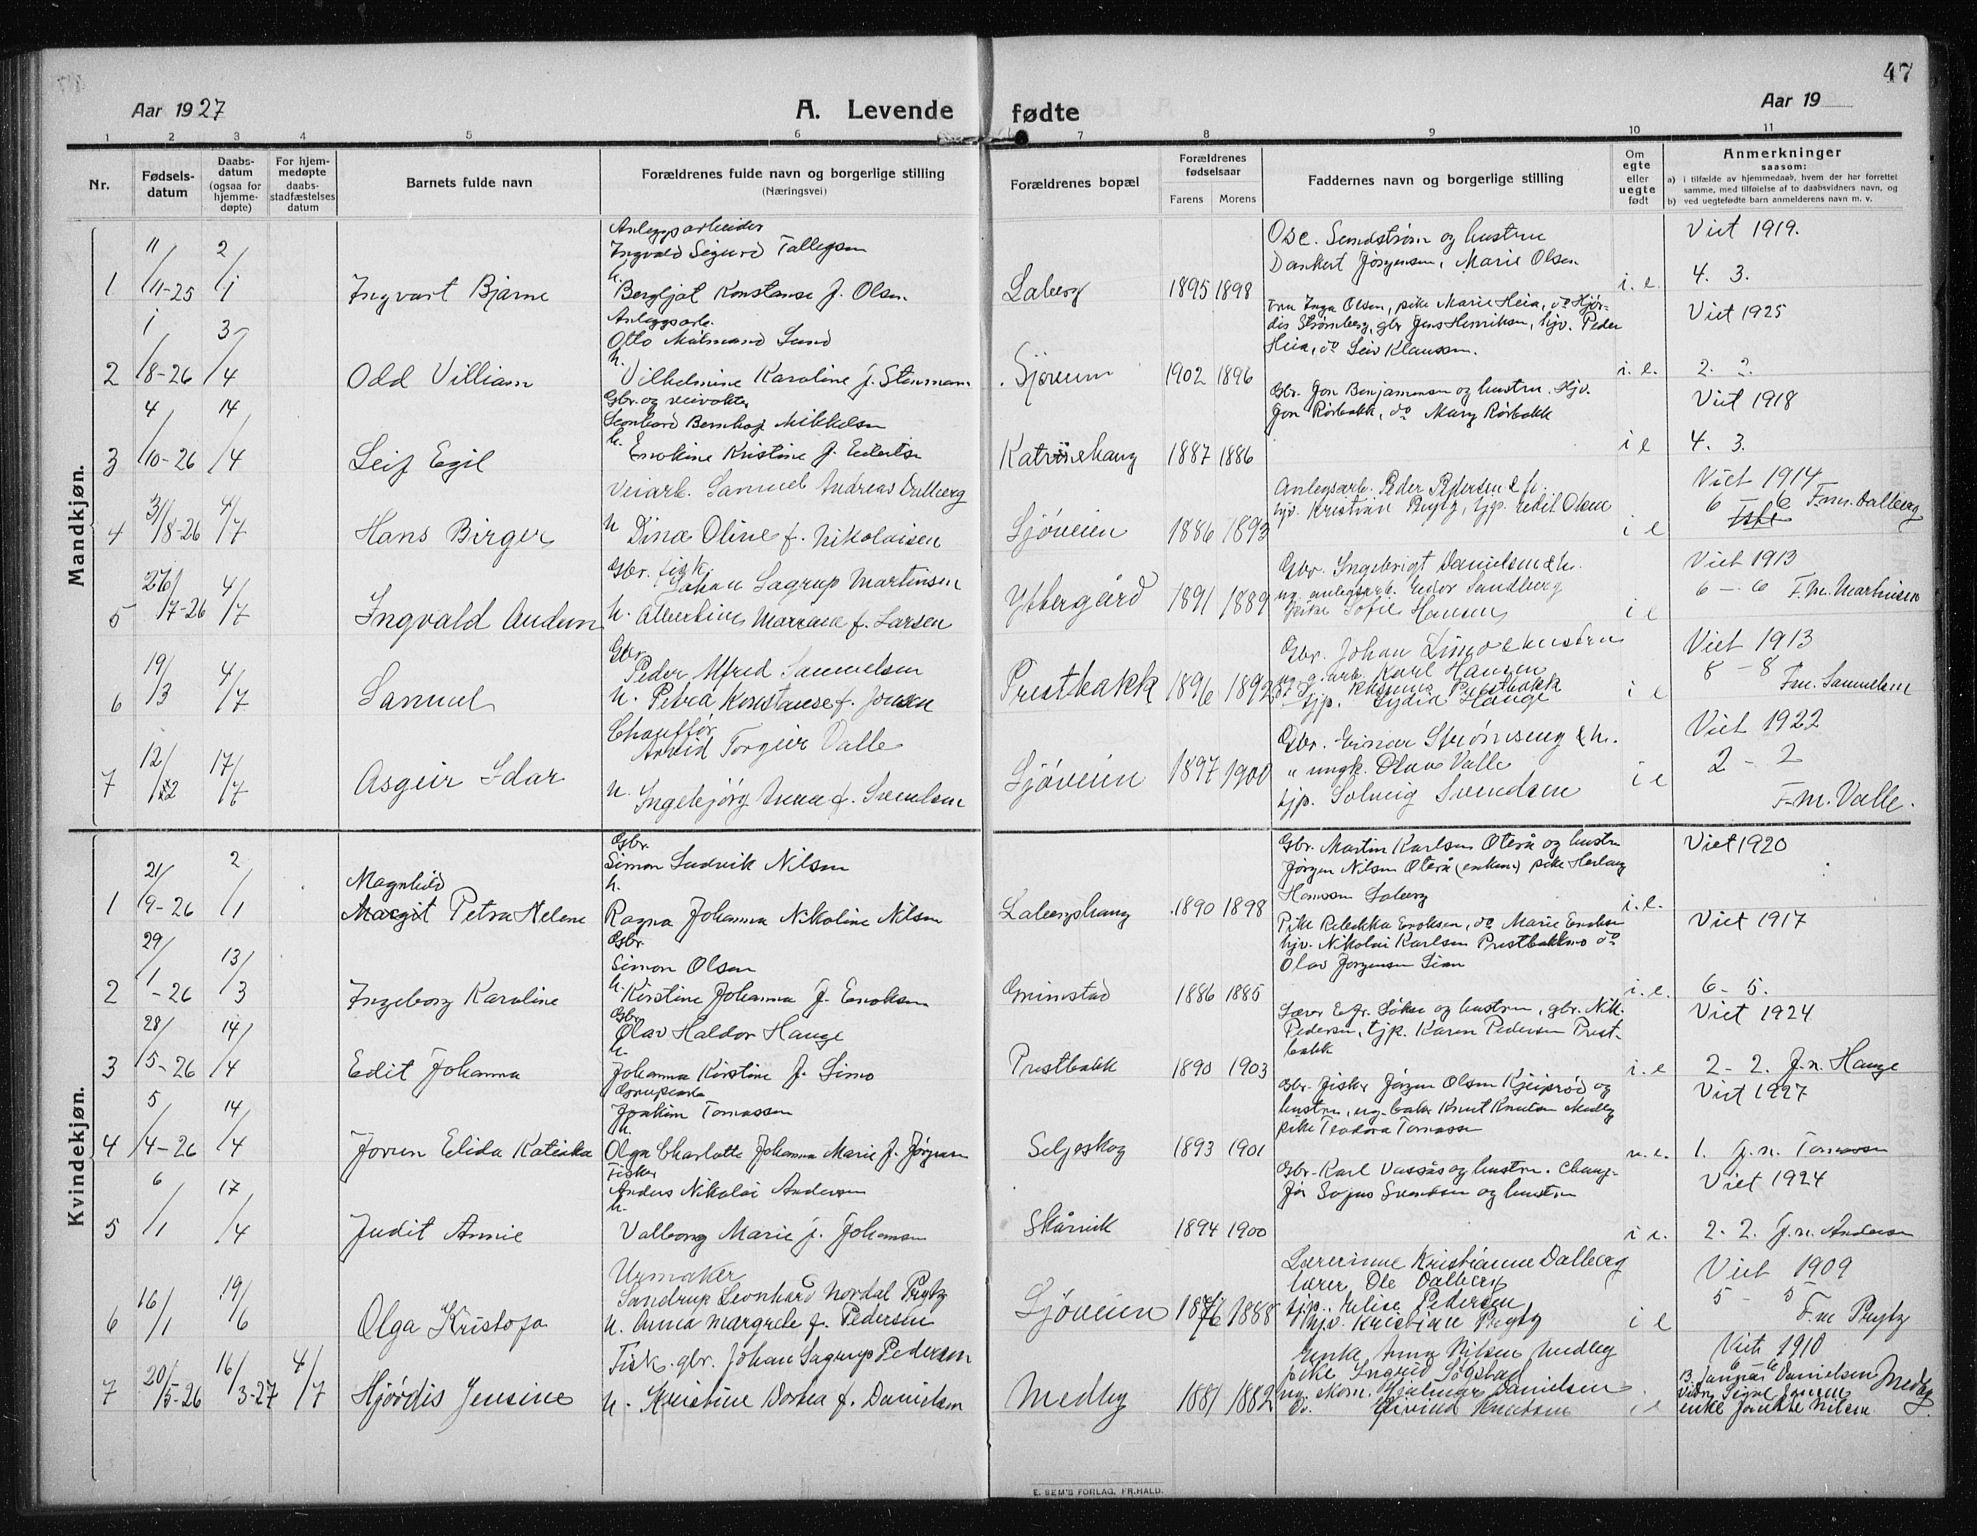 47
Aar 1927
A. Levende fødte
Aar 19
1 2 3 4 5 6 7 8 9 10 11
Nr.
Fødsels-
datum
Daabs-
datum
(ogsaa for
hjemme-
døpte)
For hjem-
medøpte
daabs-
stadfæstelses
datum
Barnets fulde navn
Forældrenes fulde navn og borgerlige stilling
(Næringsvei)
Forældrenes bopæl
Forældrenes
fødselsaar
Farens Morens
Faddernes navn og borgerlige stilling
Om
egte
eller
uegte
født
Anmerkninger
saasom:
a) i tilfælde av hjemmedaab, hvem der har forrettet
samme, med tilføielse af to daabsvidners navn, og
b) ved uegtefødte barn anmelderens navn m. v.
Mandkjøn.
1 11/11-25 2/1 Ingvart Bjarne
Anleggsarbeider
Ingvald Sigurd Tallegsen
h.
Bergljot Konstanse f. Olsen
Laberg 1895 1898
Osc. Sundstrøm og hustru
Dankert Jørgensen, Marie Olsen
i. e.
Viet 1919.
4. 3.
2 1/8-26 3/4 Odd Villiam
Anleggsarb.
Otto Malmand Lund
h.
Vilhelmine Karoline f. Stenmann
Sjøveien 1902 1896
Fru Inga Olsen, pike Marie Heia, do Hjør-
dis Strømberg, gbr Jens Henriksen, hjv. Peder
Heia, do Leiv Klaussen.
i. e.
Viet 1925
2. 2.
3 4/10-26 14/4 Leif Egil
Gbr. og veivokter
Leonhard Bernhof Mikkelsen
h. Enokine Kristine f. Eilertsen
Katrinehaug 1887 1886
Gbr. Jon Benjaminsen og hustru. Hjv.
Jon Rørbakk, do Mary Rørbakk
i e
Viet 1918
4. 3.
4 3/8-26 4/7 Hans Birger
Veiarb. Samuel Andreas Dalberg
h Dina Oline f. Nikolaisen
Sjøveien 1886 1893
Anlegsarb. Peder Pedersen & h.
hjv. Kristian Prytz, tjp. Edit Olsen
i e
Viet 1914
6 6 F.m. Dalberg
5 26/17-26 4/7 Ingvald Audun
Gbr. fisk.
Johan Lagrup Martinsen
h. Albertine Marrane f. Larsen
Yttergård 1891 1889
Gbr. Ingebrigt Danielsen & h.
ug. anlegsarb. Eidor Sandberg
pike Sofie Hansen
i e
Viet 1913
6 - 6 F.m. Martinsen
6 19/3 4/7 Samuel
Gbr.
Peder Alfred Samuelsen
h. Petra Konstanse f. Jensen
Prestbakk 1896 1892
Gbr. Johan Limo & hustru
ug. g.arb. Karl Hansen
Prestbakk
tjp. Lydia Hauge
i e
Viet 1913
8 - 8
Fm. Samuelsen
7 12/22 17/7 Asgeir Idar
Chauffør
Arvid Torgeir Valle
h. Ingebjørg Anna f. Svendsen
Sjøveien 1897 1900
Gbr. Einar Strømseng & h.
" ungk. Olav Valle
tjp. Solveig Svendsen
i e
Viet 1922
2 - 2
F.m. Valle.
Kvindekjøn.
1 21/9-26 2/1
Magnhild
Margit Petra Helene
Gbr.
Simon Ludvik Nilsen
h.
Ragna Johanna Nikoline Nilsen
Labergshaug 1890 1898
Gbr. Martin Karlsen Oterå og hustru
Jørgen Nilsen Oterå (enkem) pike Herlaug
Hanssen Laberg
i. e.
Viet 1920
2 29/1-26 13/3 Ingeborg Karoline
Gbr.
Simon Olsen
h. Kirstine Johanna f. Enoksen
Grimstad 1886 1885
Pike Rebekka Enoksen, do Marie Enoksen
hjv. Nikolai Karlsen Prestbakkmo do
Olav Jørgensen Lian
i. e.
Viet 1917
6 - 5.
3 28/5-26 14/4 Edit Johanna
Gbr.
Olav Haldor Hauge
h.
Johanna Kirstine f. Limo
Prestbakk 1890 1903
Lærer E. Gr. Løkse og hustru, gbr. Nik.
Pedersen, tjp. Karen Pedersen Prest-
bakk
i. e
Viet 1924
2 - 2. f.n. Hauge
4 5/4-26 14/4 Jorun Elida Katinka
Grubearb.
Joakim Tomassen
h.
Olga Charlotte Johanna Marie f. Jørgensen
Seljeskog 1893 1901
Gbr. fisker Jørgen Olsen Kjeiprød og
hustru, ug. baker Knut Knutsen Medby
pike Teodora Tomassen
u. e.
Viet 1927
1. f.n. Tomassen
5 6/1 17/4 Judit Annie
Fisker
Anders Nikolai Andersen
h.
Valborg Marie f. Johansen
Skårvik 1894 1900
Gbr. Karl Vassås og hustru. Chauf-
før Sofus Svendsen og hustru
i e.
Viet 1924
2 - 2. f.n. Andersen
6 16/1 19/6 Olga Kristofa
Urmaker
Sandrup Leonhard Nordal Prytz
h. Anna Margrete f. Pedersen
Sjøveien 1876 1888
Lærerinne Kristianne Dalberg
lærer Ole Dalberg
tjp. Elise Pedersen
hjv. Kristian Prytz
i e
Viet 1909
5 - 5
F.m Prytz
7 20/5-26 16/3-27 4/7 Hjørdis Jensine
Fisk. gbr. Johan Lagrup Pedersen
h. Kristine Dortea f. Danielsen
Medby 1881 1882
Enke Anna Nilsen Medby
pike Ingrid Løgstad
ug. kom. Hjalmar Danielsen
Do. Eivind Knutsen
i e
Viet 1910
6 - 6
B. Danielsen
Vidn. Signe Jensen
enke Nilsen
Medby
E. SEM'S FORLAG, FR.HALD.